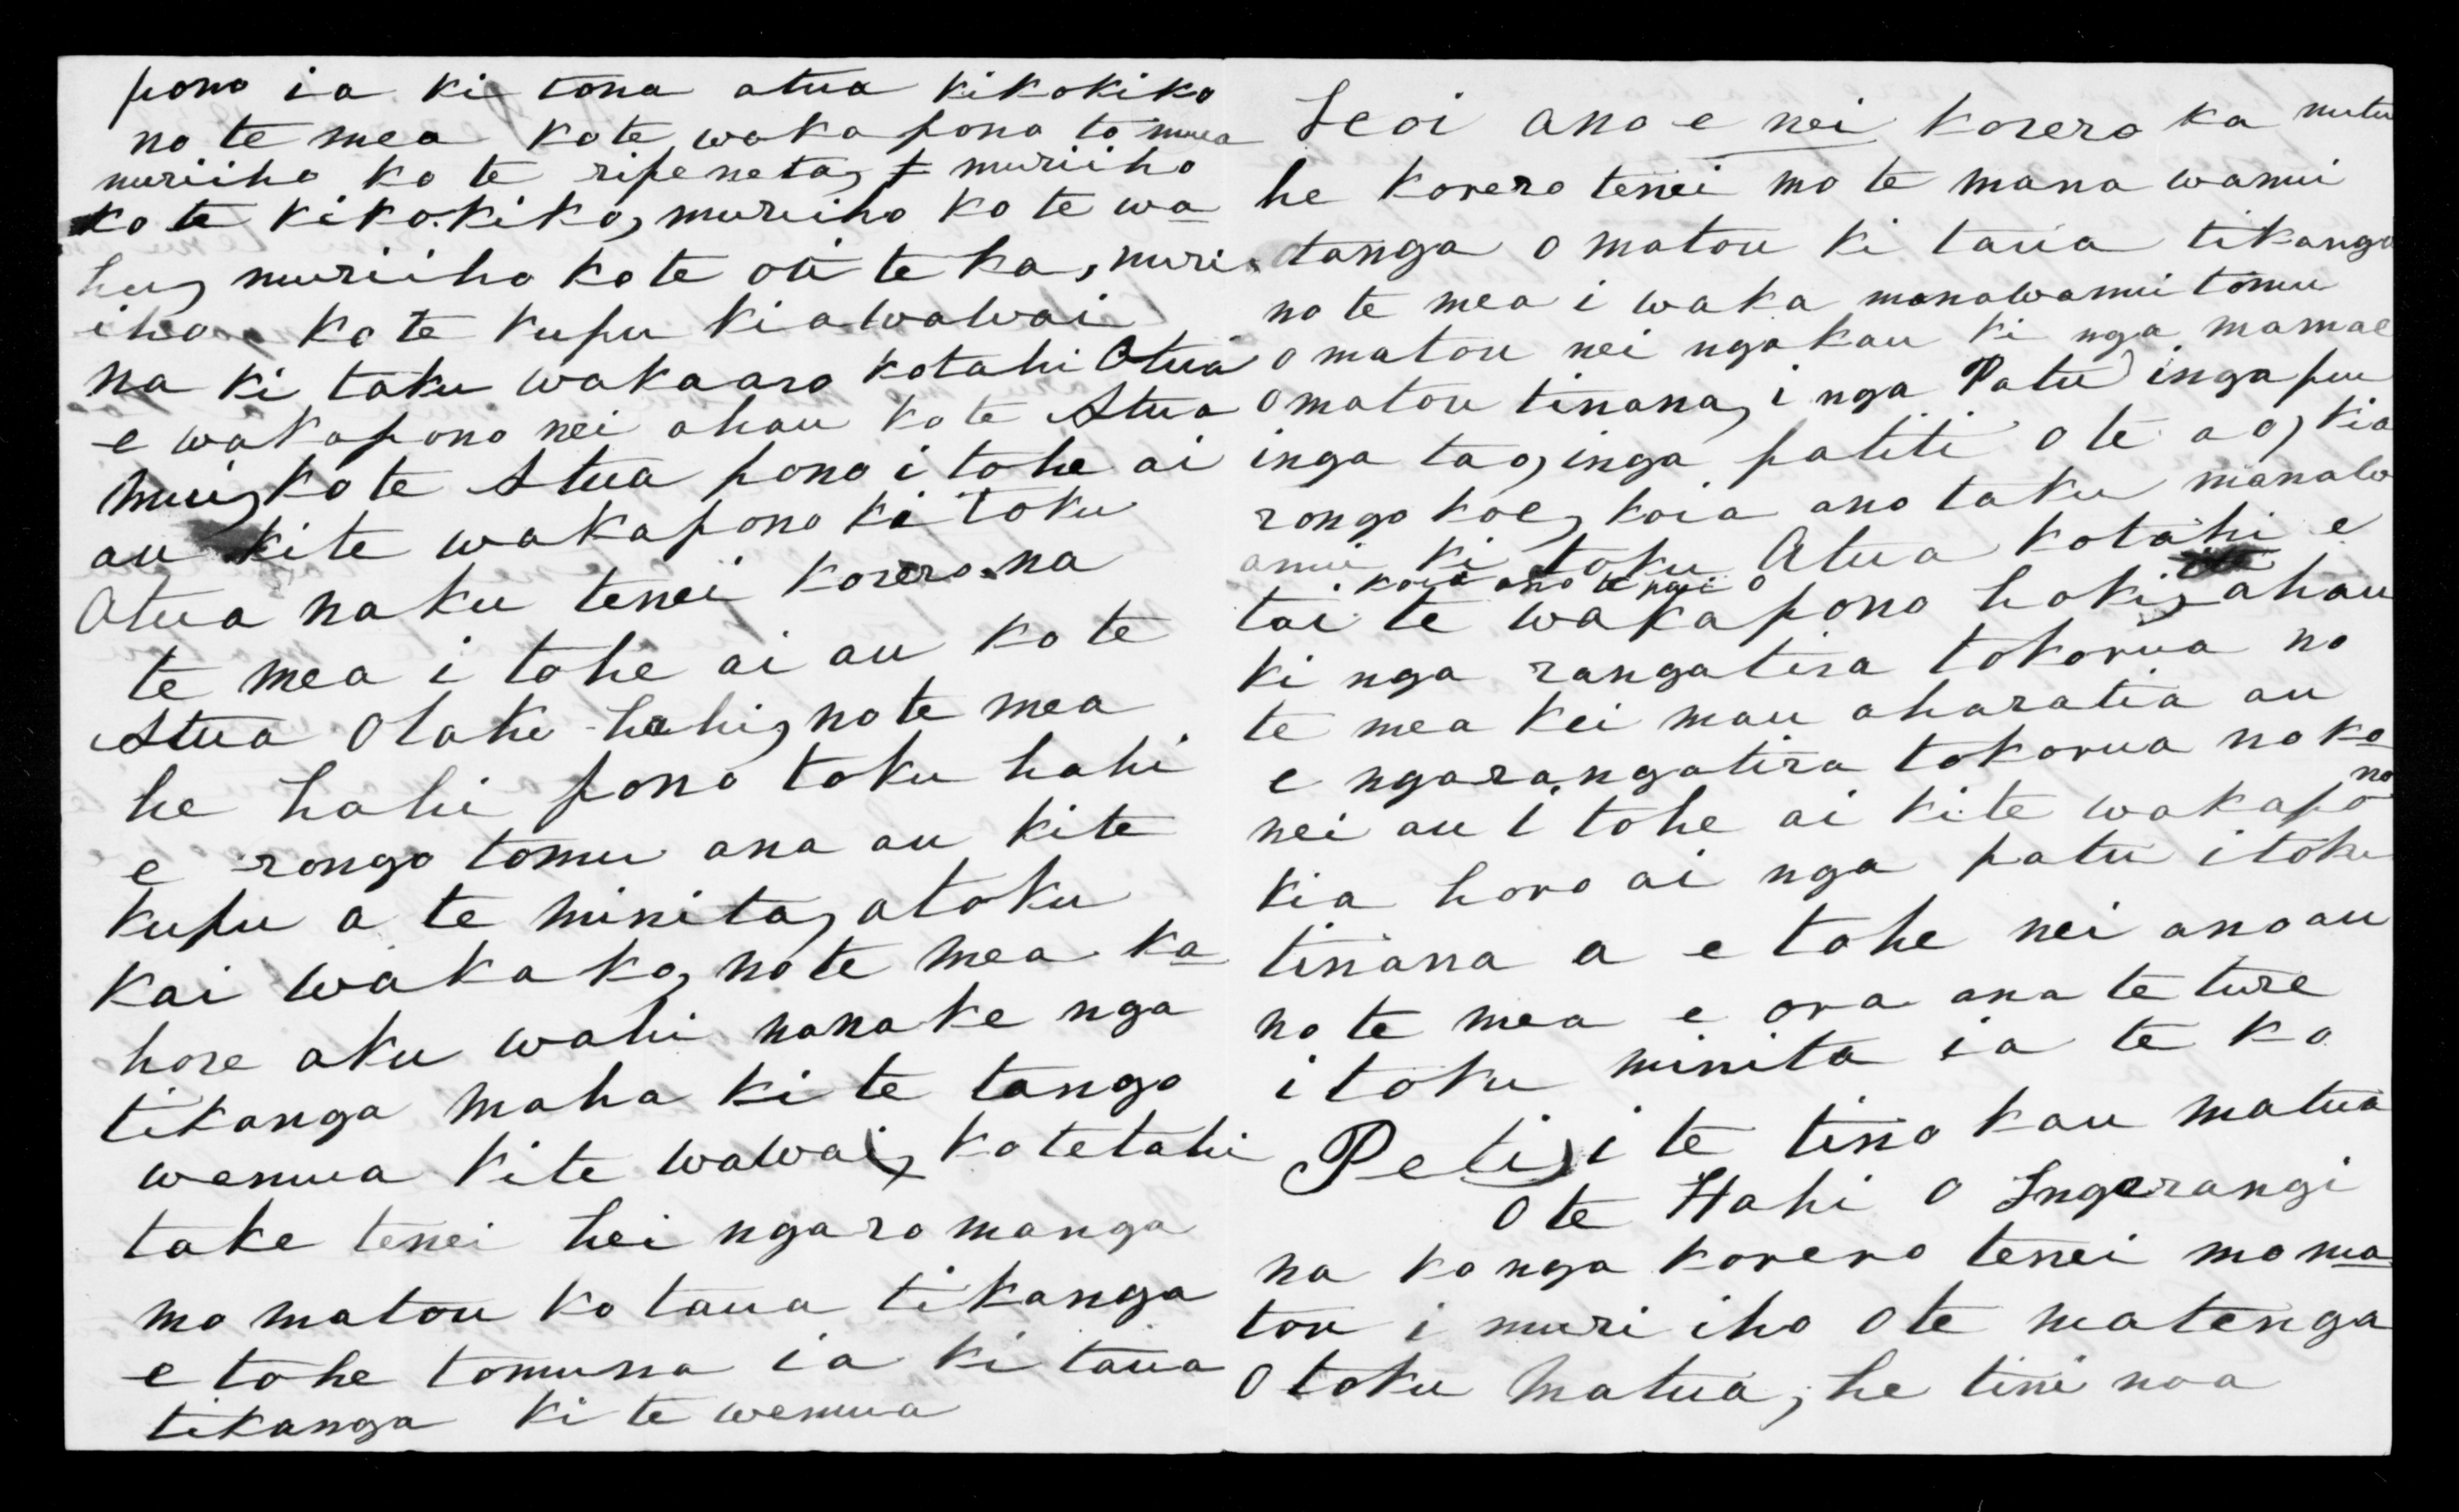 pono ia ki tona atua kikokiko
no te mea kote wakapono to mua
muriiho ko te ripeneta, muriiho
ko te kikokiko, muriiho ko te wa
hu, muriiho kote oti te ka, muri
iho kote kupu kiawawai
na ki taku wakaaro kotahi Atua
e wakapono nei ahau ko te Atua
nui, kote Atua pono i tohe ai
au kite wakapono ki toku
Atua naku tenei korero na
te mea i tohe ai au ko te
Atua Otaku hahi, note mea
he hahi pono toku hahi
e rongo tomu ana au kite
kupu a te minita, atoku
kai wakako, note mea ka
hore aku wahi nanake nga
tikanga maha kite tango
wenua kite wawai, kotetahi
take tenei hei ngaromanga
mo matou kotaua tikanga
e tohe tomuna ia ki taua
tikanga ki te wenua
heoi ano e nei korero ka mutu
he korero tenei mo te mana wanui
tanga o matou ki taua tikanga
no te mea i waka manawanui tomu
o matou nei ngakau ki nga mamae
omatou tinana, i nga Patu inga puu
inga tao, inga patiti o te ao, kia
rongo koe, koia ano taku manaw
anui ki toku Atua kotahi e
koia ano te ngaio
tai te wakapono hoki, ahau
ki nga rangatira tokorua no
te mea kei mau aharatia au
e ngarangatira tokorua noko
nei au i tohe ai kite wakapo
no
kia horo ai nga patu itoku
tinana a e tohe nei anoau
no te mea e ora ana te ture
itoku minita ia te ko
Peti, i te tino kau matua
Ote Hahi O Ingarangi
na konga korero tenei mo ma
tou i muri iho Ote matenga
O toku Matua, he tini noa